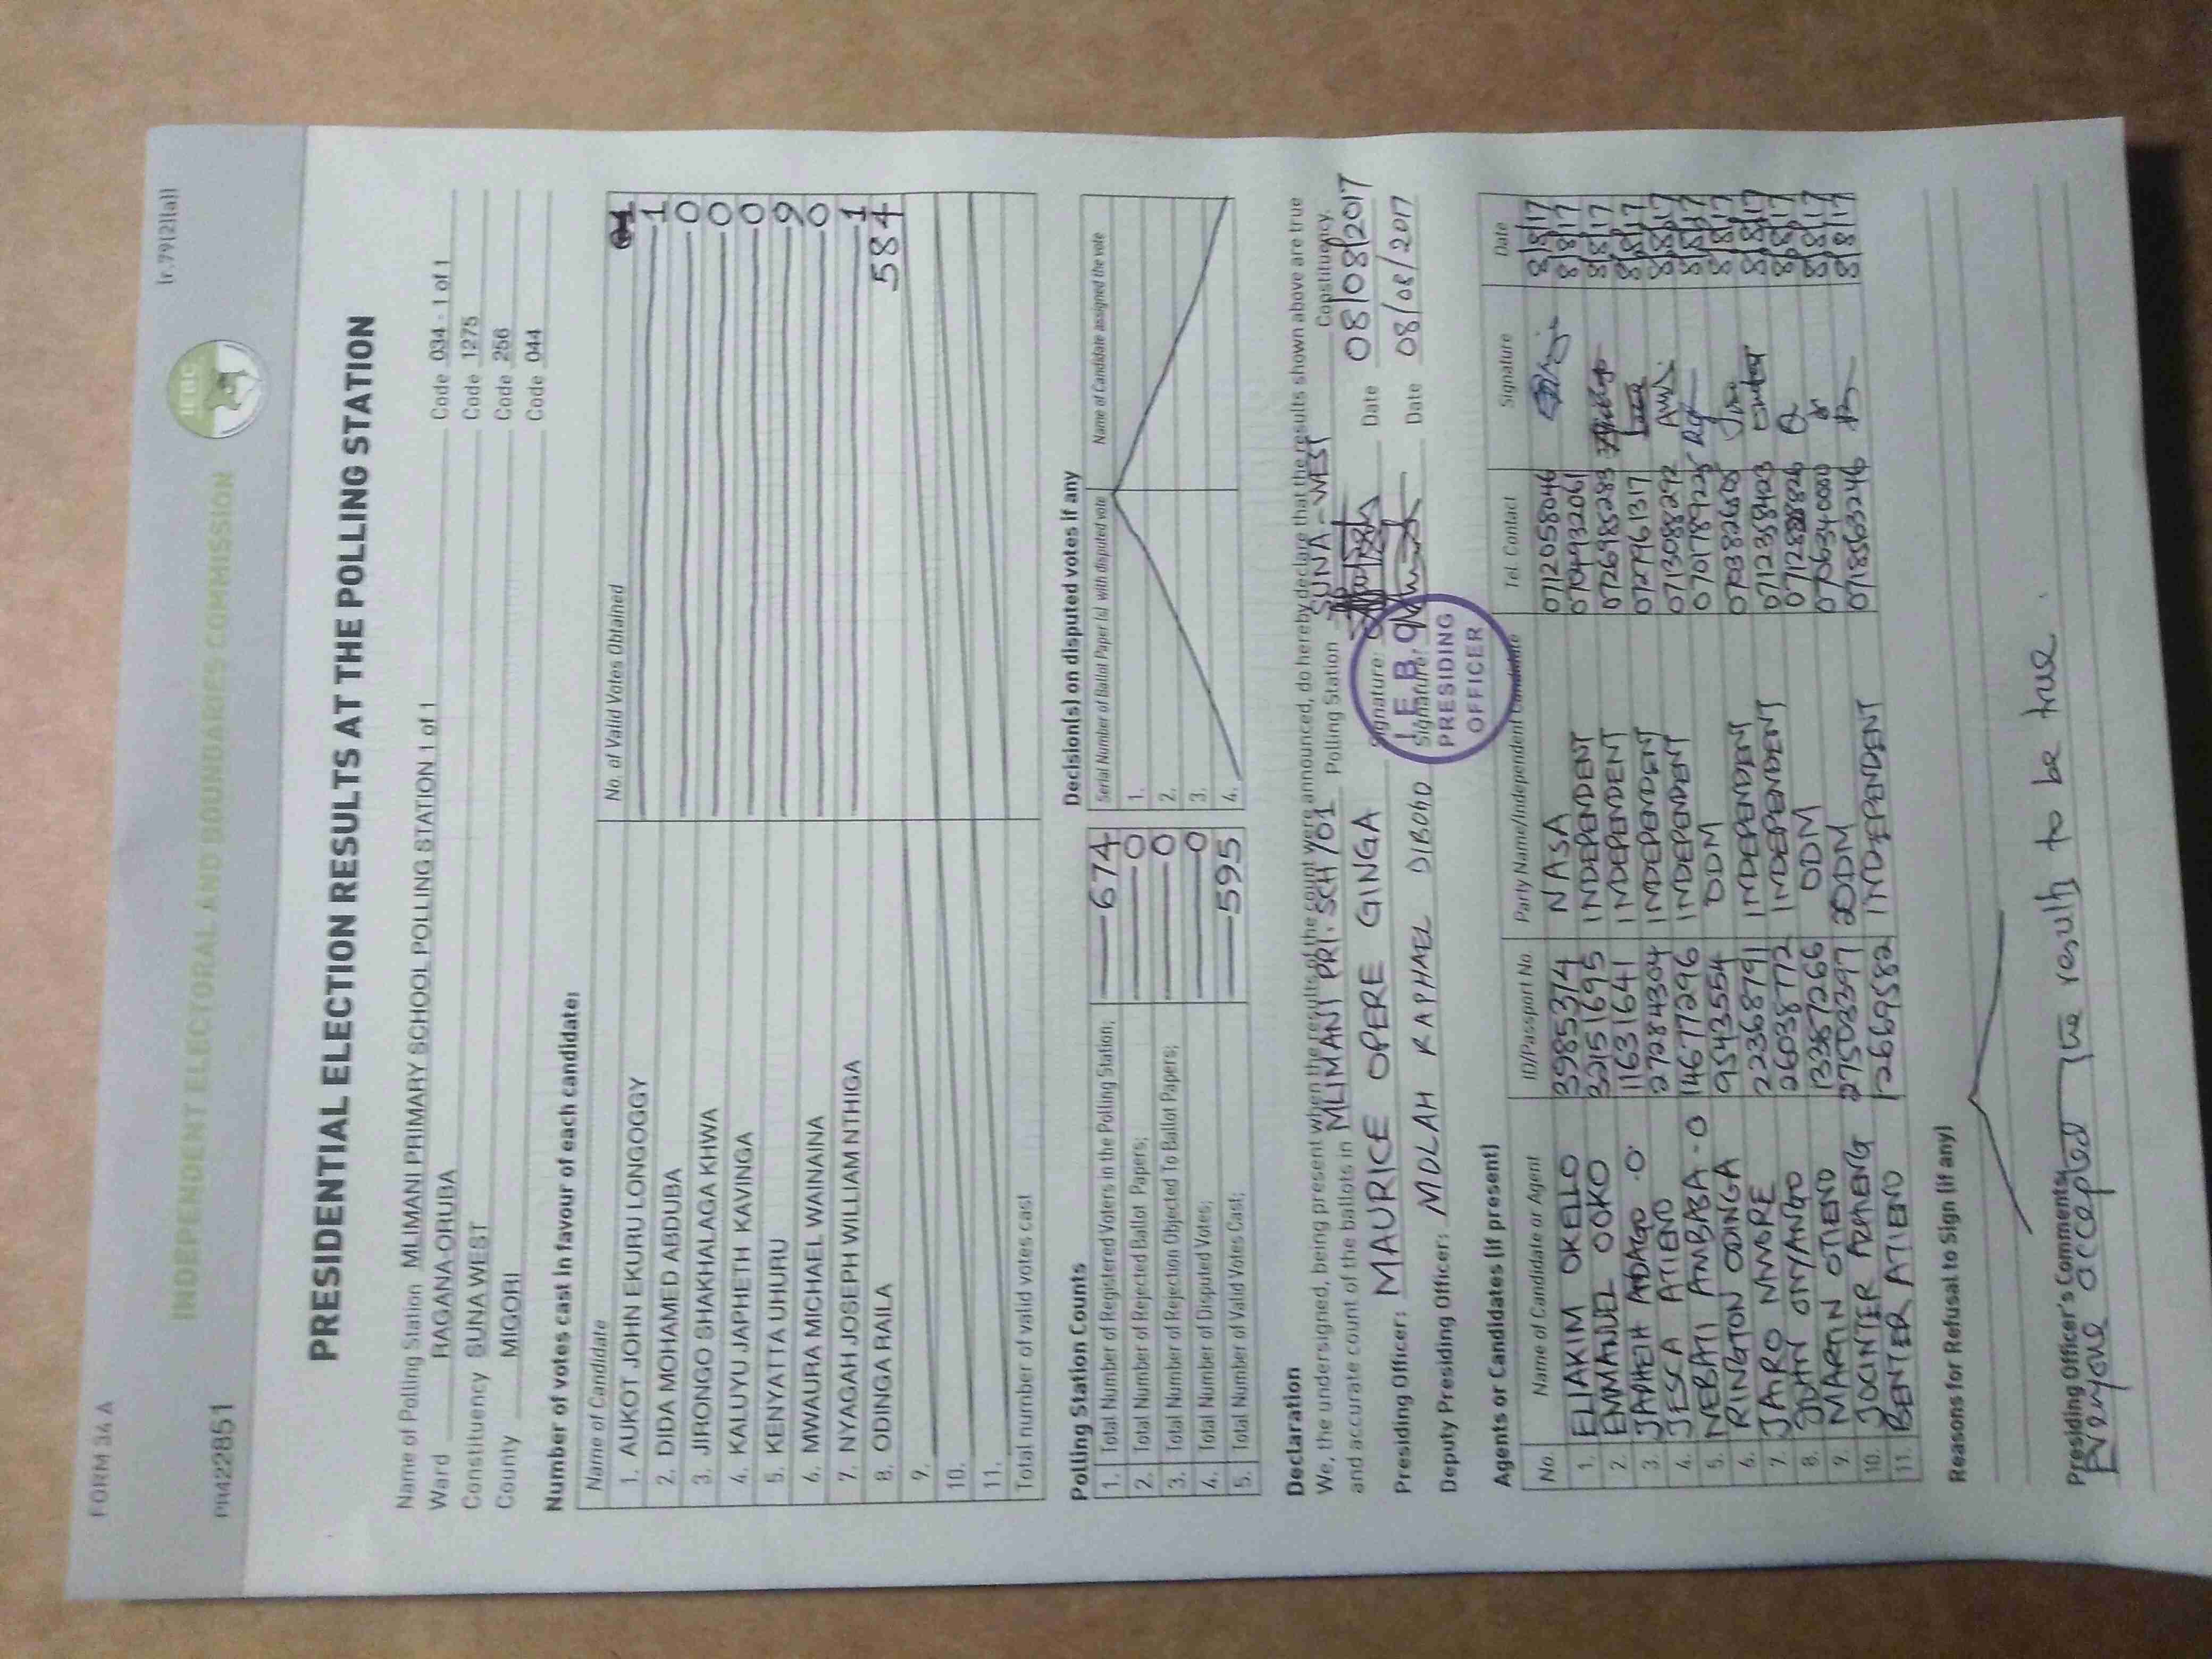 FORM 34 A
(r.79(2)(a))
PR422851
INDEPENDENT ELECTORAL AND BOUNDARIES COMMISSION
IEBC
PRESIDENTIAL ELECTION RESULTS AT THE POLLING STATION
Name of Polling Station MLIMANI PRIMARY SCHOOL POLLING STATION 1 of 1 Code 034 - 1 of 1
Ward RAGANA-ORUBA Code 1275
Constituency SUNA WEST Code 256
County MIGORI Code 044
Number of votes cast in favour of each candidate:
Name of Candidate No. of Valid Votes Obtained
1. AUKOT JOHN EKURU LONGOGGY 1
2. DIDA MOHAMED ABDUBA 1
3. JIRONGO SHAKHALAGA KHWA 0
4. KALUYU JAPHETH KAVINGA 0
5. KENYATTA UHURU 9
6. MWAURA MICHAEL WAINAINA 0
7. NYAGAH JOSEPH WILLIAM NTHIGA 1
8. ODINGA RAILA 584
9.
10.
11.
Total number of valid votes cast
Polling Station Counts
1. Total Number of Registered Voters in the Polling Station; 674
2. Total Number of Rejected Ballot Papers; 0
3. Total Number of Rejection Objected To Ballot Papers; 0
4. Total Number of Disputed Votes; 0
5. Total Number of Valid Votes Cast; 595
Decision(s) on disputed votes if any
Serial Number of Ballot Paper (s) with disputed vote Name of Candidate assigned the vote
1.
2.
3.
4.
Declaration
We, the undersigned, being present when the results of the count were announced, do hereby declare that the results shown above are true
and accurate count of the ballots in MLIMANI PRI. SCH/01 Polling Station SUNA-WEST Constituency.
Presiding Officer: MAURICE OPERE GINGA Signature: Date 08/08/2017
Deputy Presiding Officer: MOLAH RAPHAEL DIBOGO Signature: Date 08/08/2017
I.E.B.C
PRESIDING
OFFICER
Agents or Candidates (if present)
No. Name of Candidate or Agent ID/Passport No Party Name/Independent Candidate Tel. Contact Signature Date
1. ELIAKIM OKELLO 39853714 NASA 0712058046 8/8/17
2. EMMANUEL OOKO 32151695 INDEPENDENT 0704932061 8/8/17
3. JAPHETH ADAGO .O. 11631641 INDEPENDENT 0726985283 8/8/17
4. JESCA ATIENO 27284304 INDEPENDENT 0727961317 8/8/17
5. NEBATI AMBABA - O 14677296 INDEPENDENT 0713088292 8/8/17
6. RINGTON ODINGA 9543554 ODM 0701789225 8/8/17
7. JARO NWORE 22368791 INDEPENDENT 0703826808 8/8/17
8. JOHN ONYANGO 26038772 INDEPENDENT 0712358423 8/8/17
9. MARTIN OTIENO 13357266 ODM 8/8/17
10. JOCINTER 27503397 ODM 0706340080 8/8/17
11. BENTER ATIENO 12669582 INDEPENDENT 0718563246 8/8/17
Reasons for Refusal to Sign (if any)
Presiding Officer's Comments
Everyone accepted the results to be true.